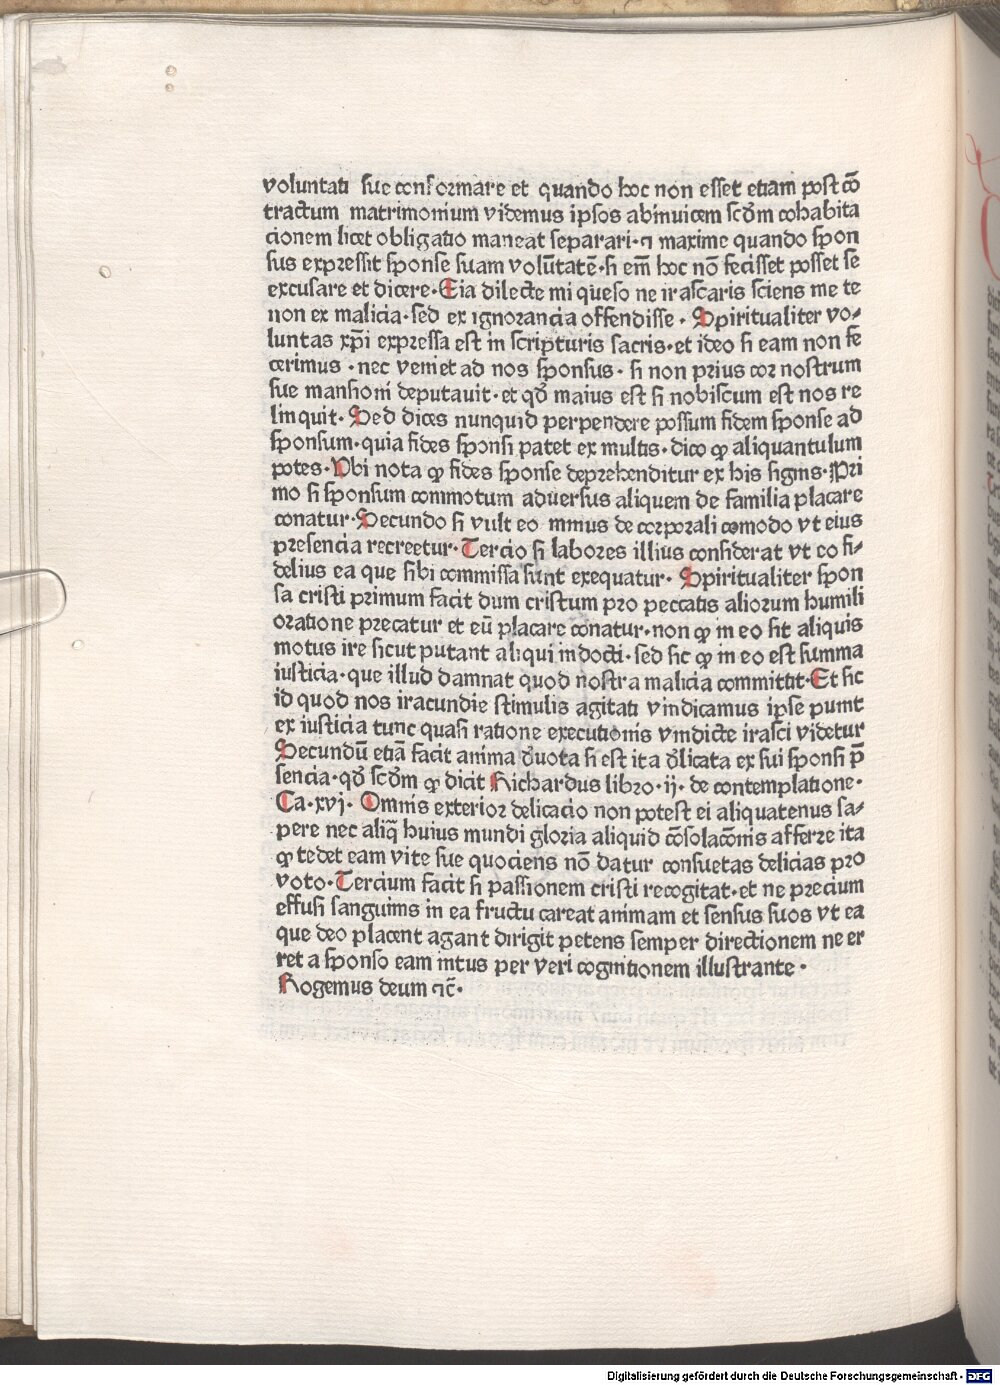 voluntati sue conformare et quando hoc non esset etiam post cō
tractum matrimonium videmus ipsos abinuicem scdm̄ cohabita
cionem licet obligatio maneat separari·⁊ maxime quando spon
sus expressit sponse suam volūtatē·si em̄ hoc nō fecisset posset se
excusare et dicere·Eia dilecte mi queso ne irascaris sciens me te
non ex malicia·sed ex ignorancia offendisse·Spiritualiter vo⸗
luntas xp̄i expressa est in scripturis sacris·et ideo si eam non fe
cerimus·nec veniet ad nos sponsus·si non prius cor nostrum
sue mansioni deputauit·et qd̄ maius est si nobiscum est nos re
linquit·Sed dices nunquid perpendere possum fidem sponse ad
sponsum·quia fides sponsi patet ex multis·dico ꝙ aliquantulum
potes·Vbi nota ꝙ fides sponse deprehenditur ex his signis·Pri
mo si sponsum commotum aduersus aliquem de familia placare
conatur·Secundo si vult eo minus de corporali comodo vt eius
presencia recreetur·Tercio si labores illius considerat vt eo fi⸗
delius ea que sibi commissa sunt exequatur·Spiritualiter spon
sa cristi primum facit dum cristum pro peccatis aliorum humili
oratione precatur et eū placare conatur·non ꝙ in eo sit aliquis
motus ire sicut putant aliqui indocti·sed sic ꝙ in eo est summa
iusticia·que illud damnat quod nostra malicia committit·Et sic
id quod nos iracundie stimulis agitati vindicamus ipse punit
ex iusticia tunc quasi ratione executionis vindicte irasci videtur
Secundū etiā facit anima d̄uota si est ita d̄licata ex sui sponsi p̄
sencia·qd̄ scdm̄ ꝙ dicit Richardus libro·ij·de contemplatione·
Ca·xvj·Omnis exterior delicacio non potest ei aliquatenus sa⸗
pere nec aliq̄ huius mundi gloria aliquid cōsolacōnis afferre ita
ꝙ tedet eam vite sue quociens nō datur consuetas delicias pro
voto·Tercium facit si passionem cristi recogitat·et ne precium
effusi sanguinis in ea fructu careat animam et sensus suos vt ea
que deo placent agant dirigit petens semper directionem ne er
ret a sponso eam intus per veri cognitionem illustrante·
Rogemus deum ⁊c̄·
Digitalisierung gefördert durch die Deutsche Forschungsgemeinschaft - DFG